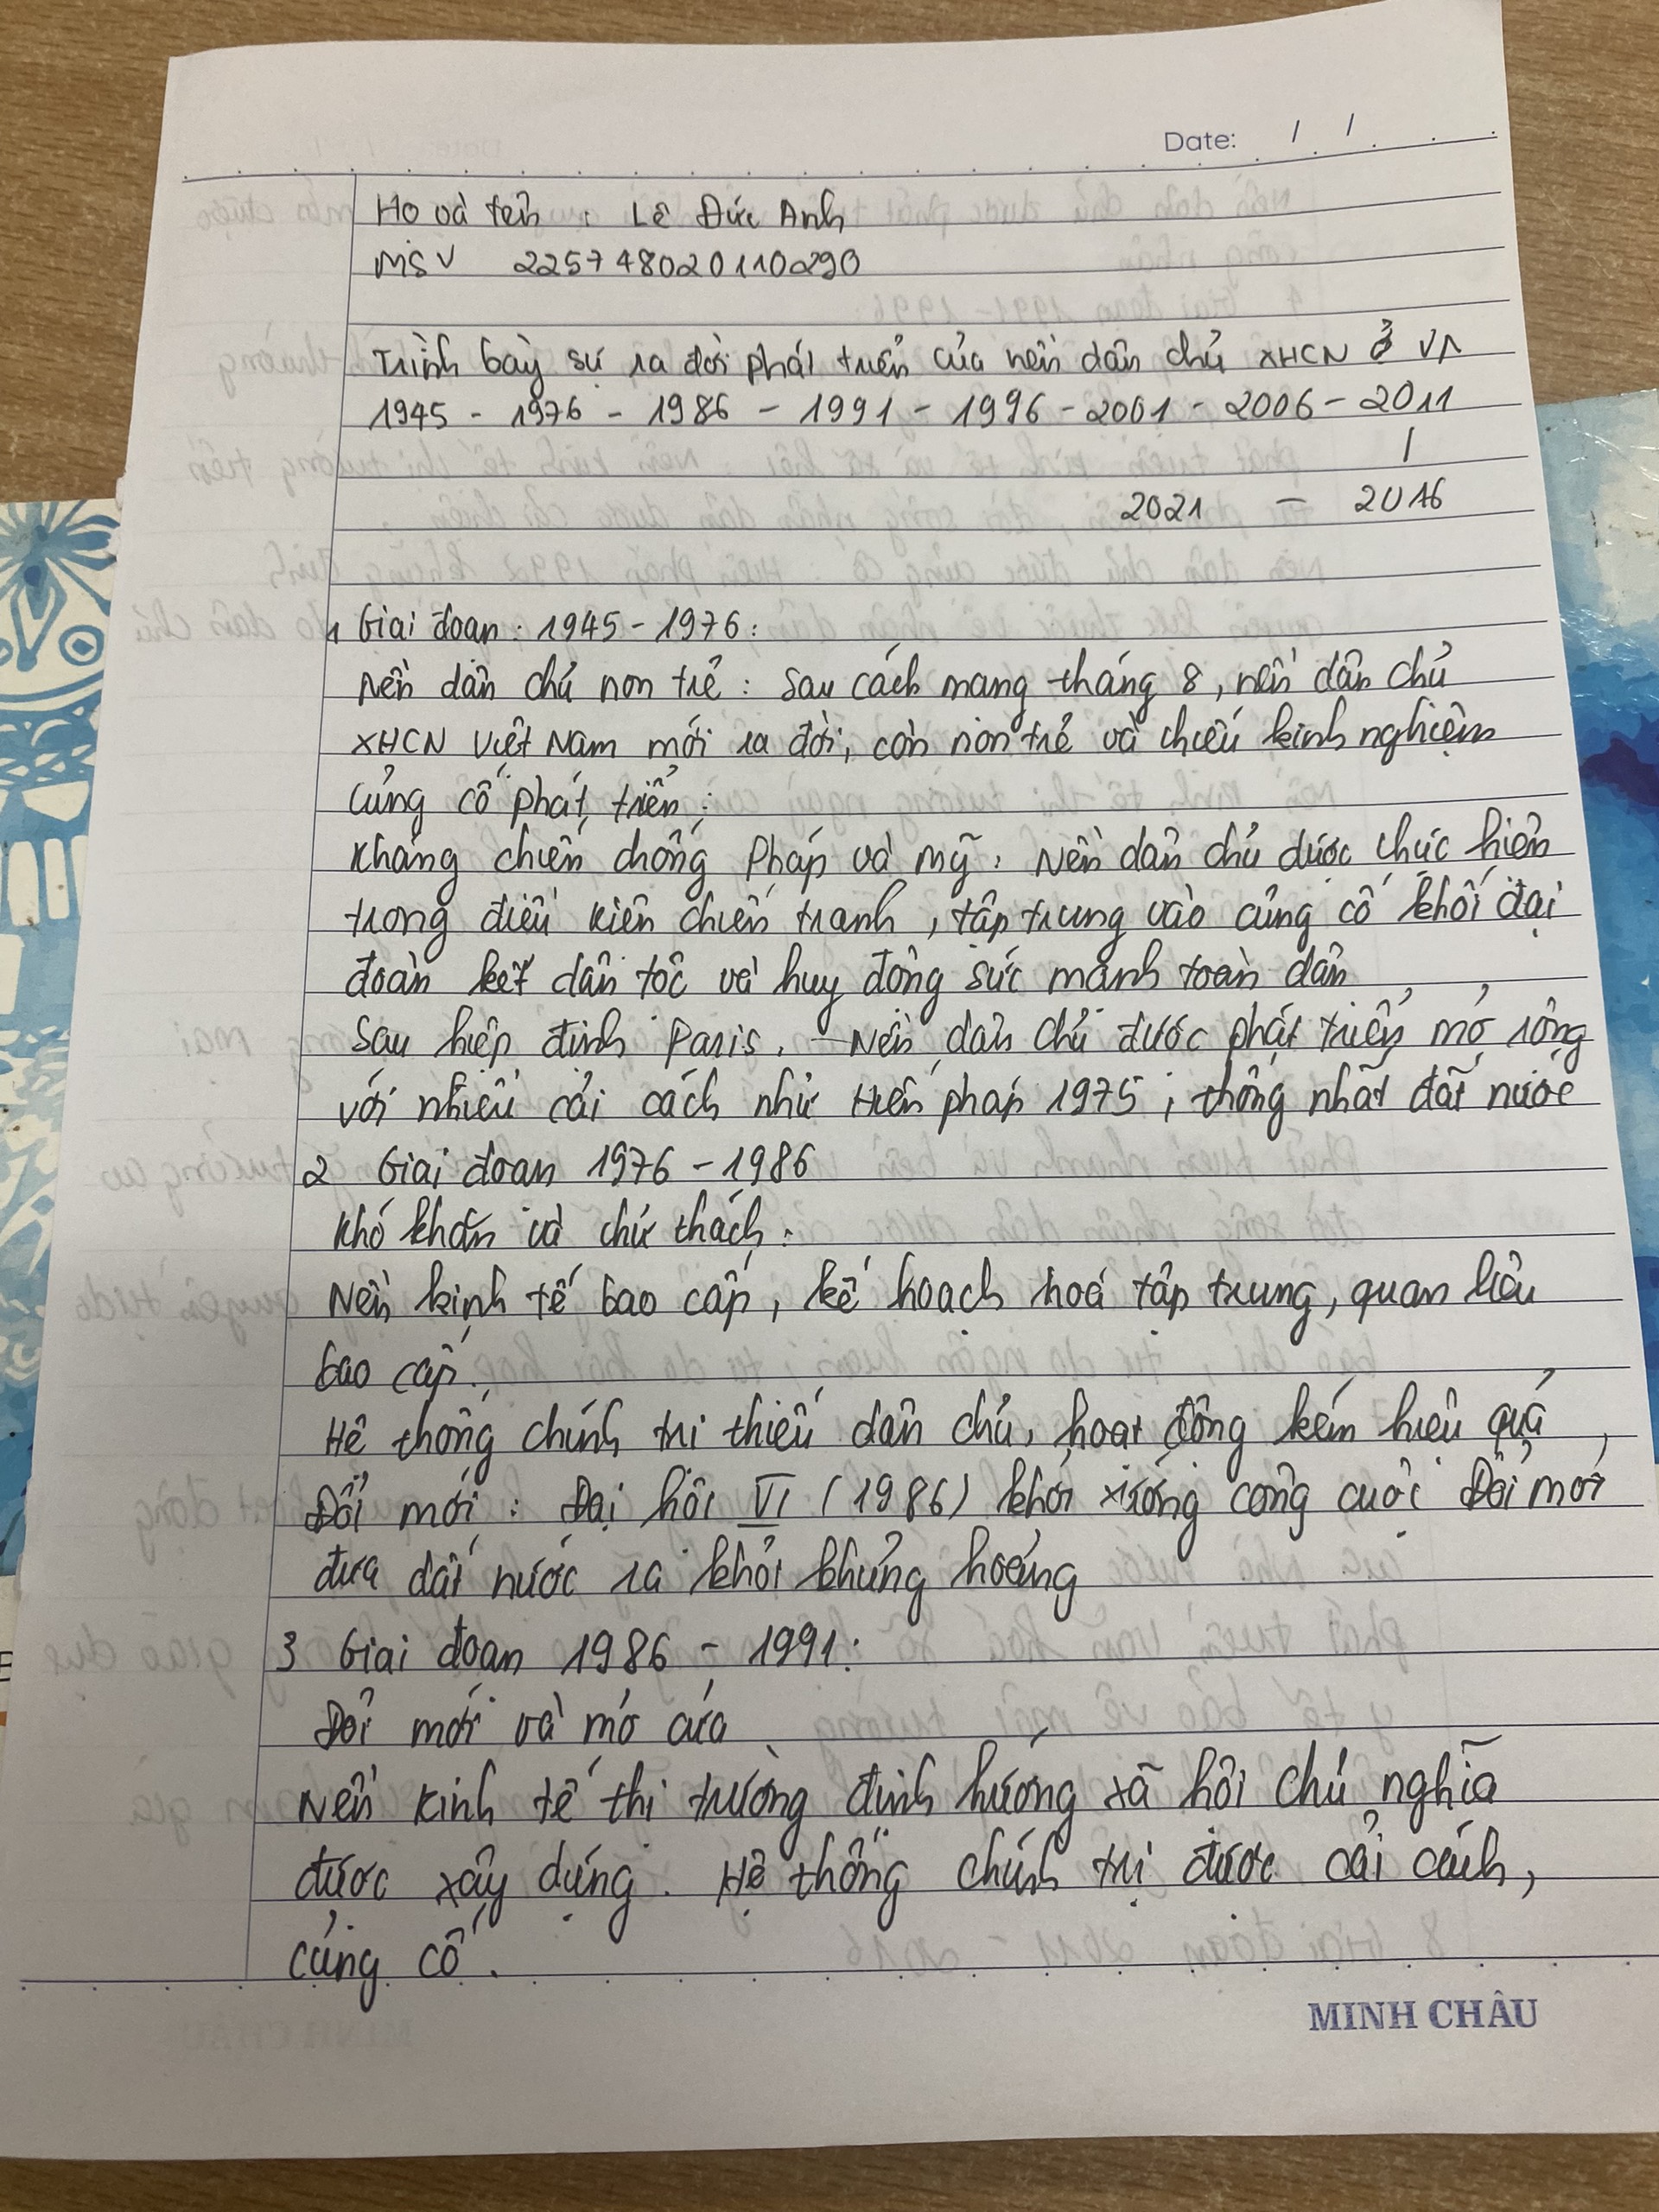 Date: / /
Họ và tên : Lê Đức Anh
MSV 2257480201110290
Trình bày sự ra đời phát triển của nền dân chủ XHCN ở VN
1945 - 1976 - 1986 - 1991 - 1996 - 2001 - 2006 - 2011
|
2021 - 2016
1 Giai đoạn : 1945 - 1976 :
Nền dân chủ non trẻ : Sau cách mạng tháng 8, nền dân chủ
XHCN Việt Nam mới ra đời, còn non trẻ và thiếu kinh nghiệm
củng cố phát triển :
Kháng chiến chống Pháp và Mỹ : Nền dân chủ được thực hiện
trong điều kiện chiến tranh, tập trung vào củng cố khối đại
đoàn kết dân tộc và huy động sức mạnh toàn dân
Sau hiệp định Paris. Nền dân chủ được phát triển mở rộng
với nhiều cải cách như Hiến pháp 1975, thống nhất đất nước
2 Giai đoạn 1976 - 1986
Khó khăn và thử thách :
Nền kinh tế bao cấp, kế hoạch hoá tập trung, quan liêu
bao cấp.
Hệ thống chính trị thiếu dân chủ, hoạt động kém hiệu quả,
Đổi mới : Đại hội VI (1986) khởi xướng công cuộc Đổi mới
đưa đất nước ra khỏi khủng hoảng
3 Giai đoạn 1986 - 1991 :
Đổi mới và mở cửa
Nền kinh tế thị trường định hướng xã hội chủ nghĩa
được xây dựng. Hệ thống chính trị được cải cách,
củng cố.
MINH CHÂU